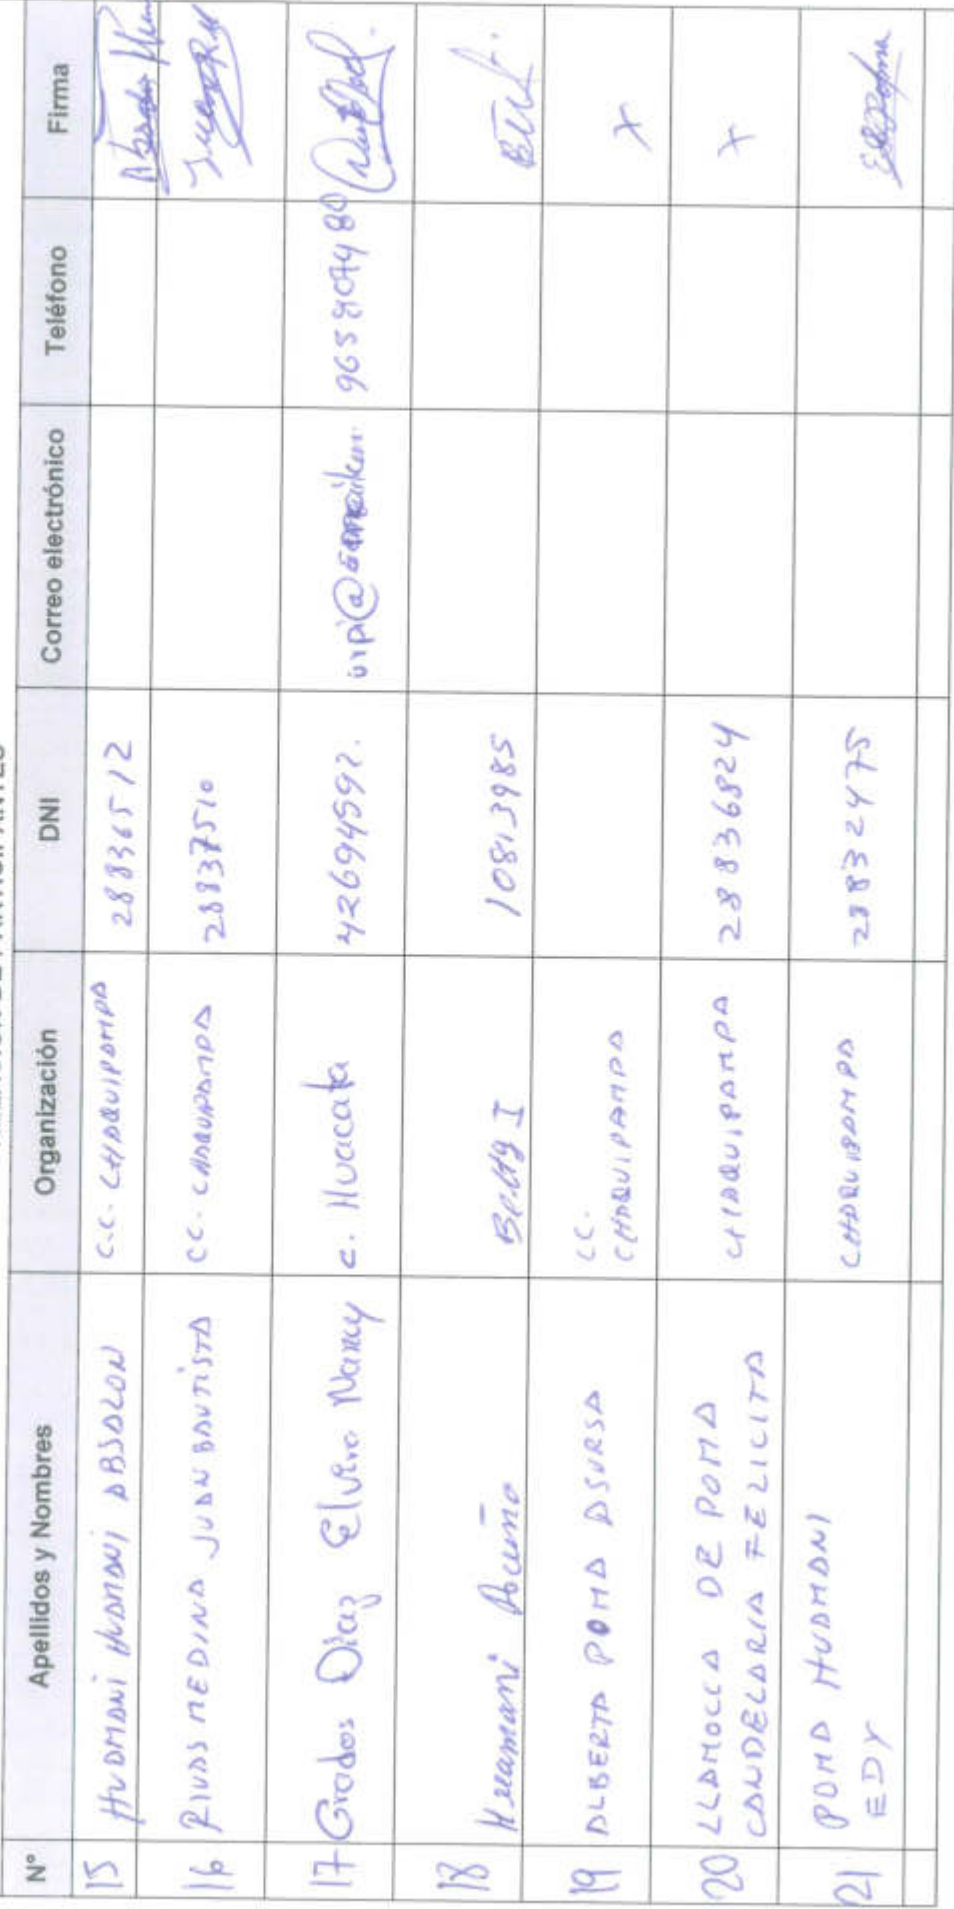 N° Apellidos y Nombres Organización DNI Correo electrónico Teléfono Firma
15 HUAMANI HUAMANI, ABSALON C.C. CHAQUIPAMPA 28836512
16 RIVAS MEDINA JUAN BAUTISTA CC. CHAQUIPAMPA 28837510
17 Grados Diaz Elvira Nancy c. Huacata 42694592.
18 Huamani 10813985
19 ALBERTA POMA ASURSA CC. CHAQUIPAMPA X
20 LLAMOCCA DE POMA CHAQUIPAMPA 28836824 X
CANDELARIA FELICITA
21 POMA HUAMANI CHAQUIPAMPA 28832475
EDY